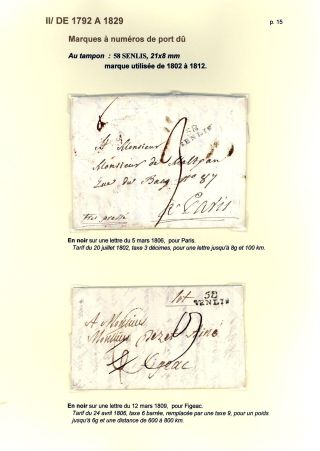 II/ DE 1792 A 1829
p. 15
Marques à numéros de port dû
Au tampon : 58 SENLIS, 21x8 mm
marque utilisée de 1802 à 1812.
58
SENLIS
A Monsieur
Monsieur de
Rue du Bacq no 87
A Paris
En noir sur une lettre du 5 mars 1806, pour Paris.
Tarif du 20 juillet 1802, taxe 3 décimes, pour une lettre jusqu'à 8g et 100 km.
58
SENLIS
A Monsieur
Monsieur
Figeac
En noir sur une lettre du 12 mars 1809, pour Figeac.
Tarif du 24 avril 1806, taxe 6 barrée, remplacée par une taxe 9, pour un poids
jusqu'à 6g et une distance de 600 à 800 km.